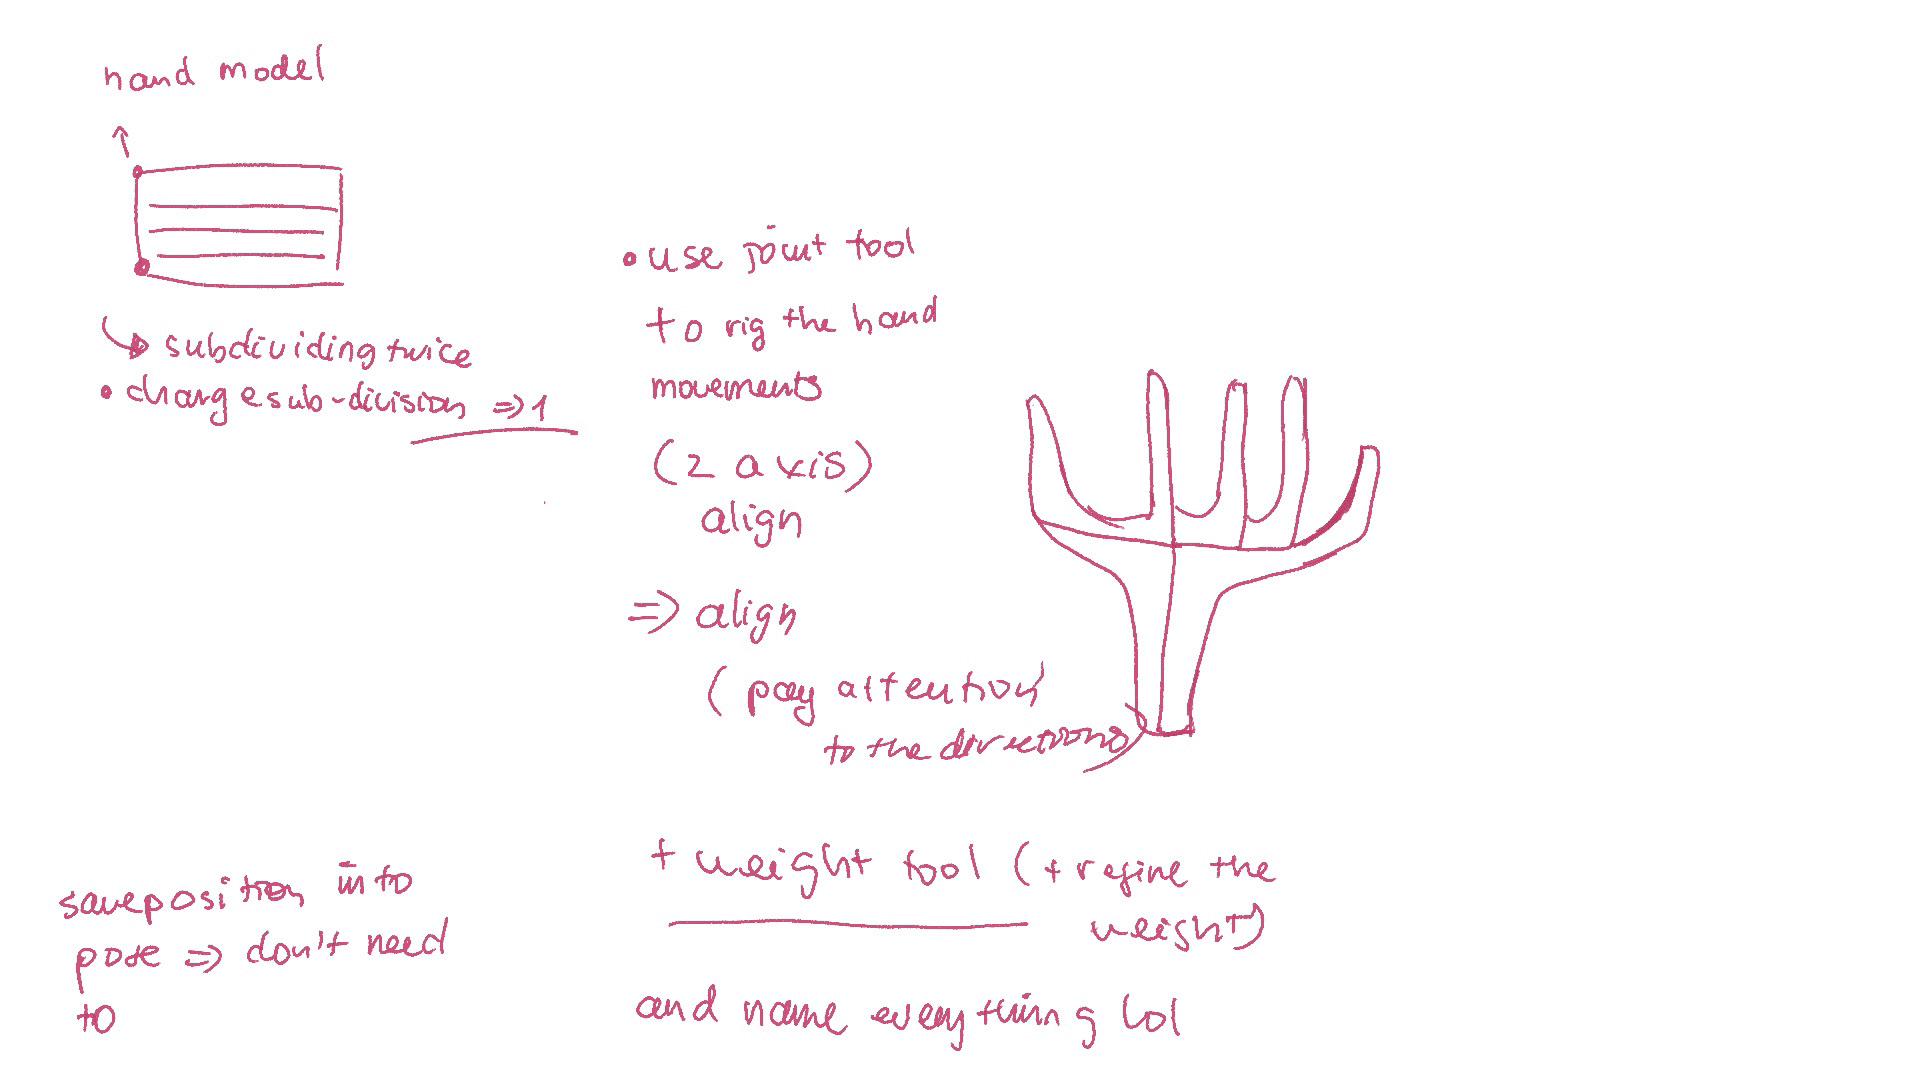 hand model
subdividing twice
• change sub-division => 1
• use joint tool
to rig the hand
movements
(2 axis)
align
=> align
(pay attention
to the directions)
+ weight tool (+ refine the
weight)
and name everything lol
save position into
pose => don't need
to